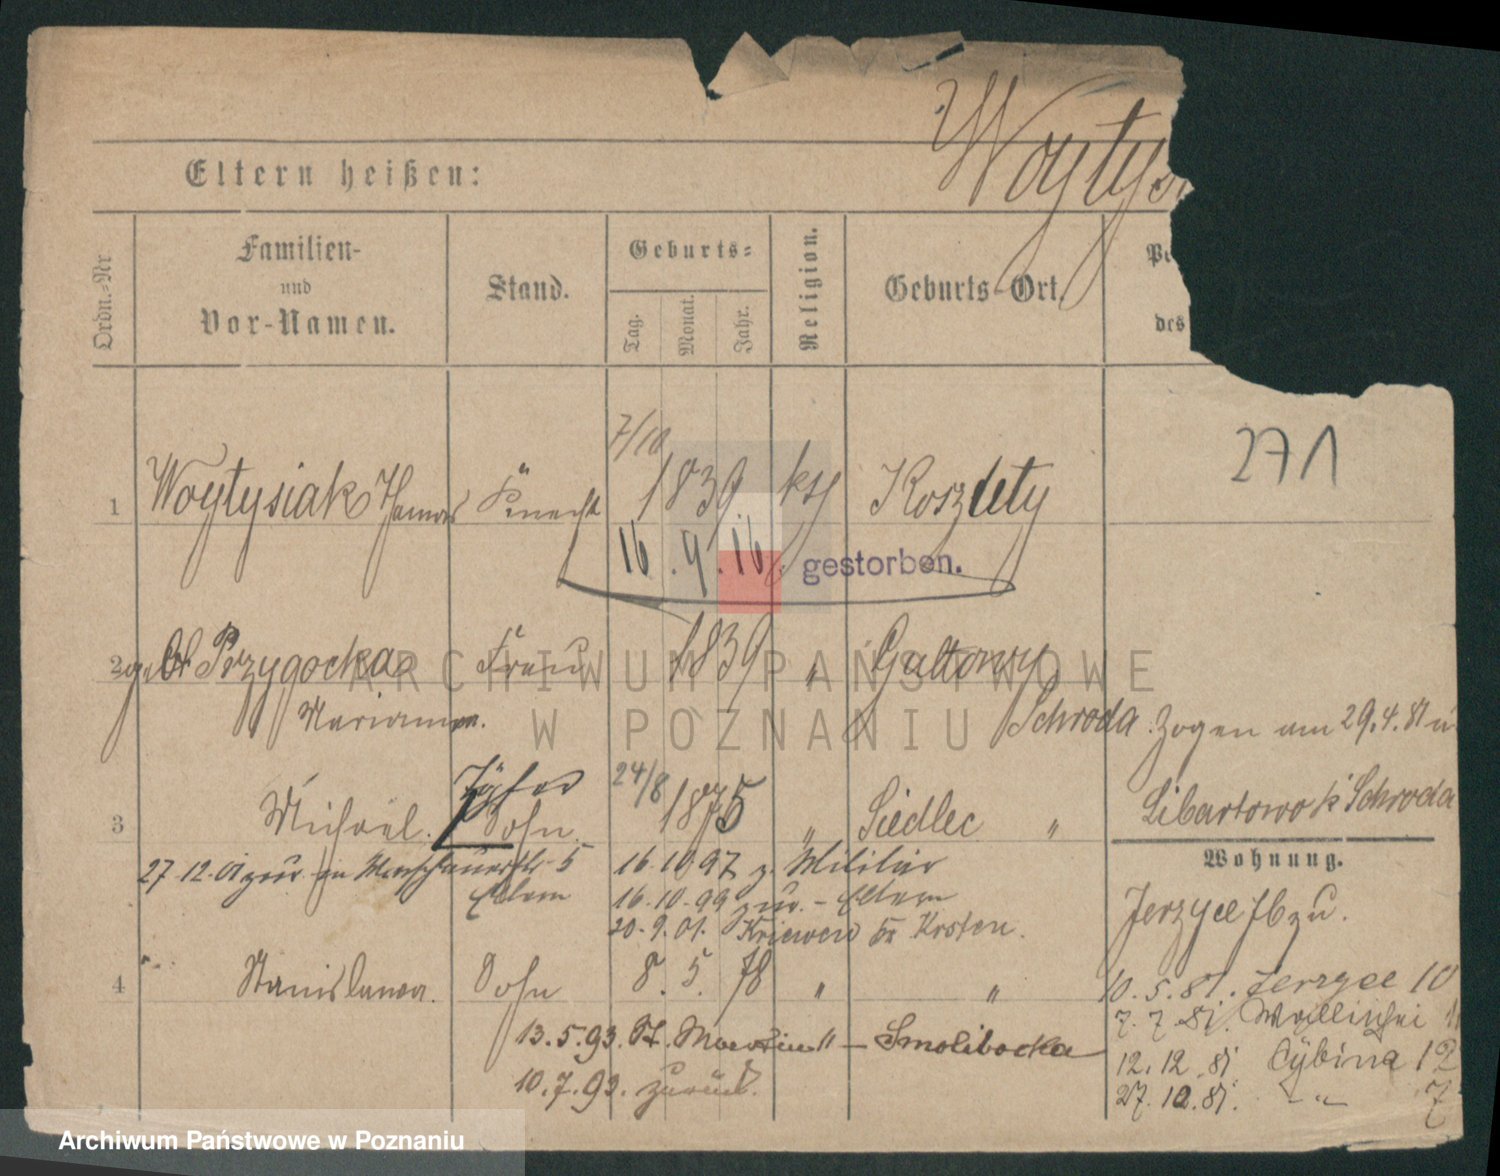 Woytys
Eltern heißen:
Ordn.-Nr.
Familien-
und
Vor-Namen.
Stand.
Geburts-
Tag.
Monat.
Jahr.
Religion.
Geburts-Ort.
des
271
7/10
1 Woytysiak Thomas Knecht 1839 kth Koszuty
16.9.16. gestorben.
2 geb Przygocka Frau 1839 " Gultowy
Marianna. Schroda
Zogen am 29.4.81 u
24/8
3 Michael. Sohn. 1875 " Siedlec "
Libartowo k Schroda
Wohnung.
27.12.01 zur. 5 16.10.97 z. Militär
Eltern 16.10.99 zur. - Eltern
20.9.01. Kriewen Kr Kosten.
Jerzyce 76 zu.
4 Stanislaus. Sohn 8. 5. 78 " "
10.5.81. Jerzyce 10
7.7.81. Wallischei 11
13.5.93. St. Martin - Smolibocka
12.12.81 Cybina 12
10.7.93. zurück.
27.12.81. - " - 7
ARCHIWUM PAŃSTWOWE
W POZNANIU
Archiwum Państwowe w Poznaniu